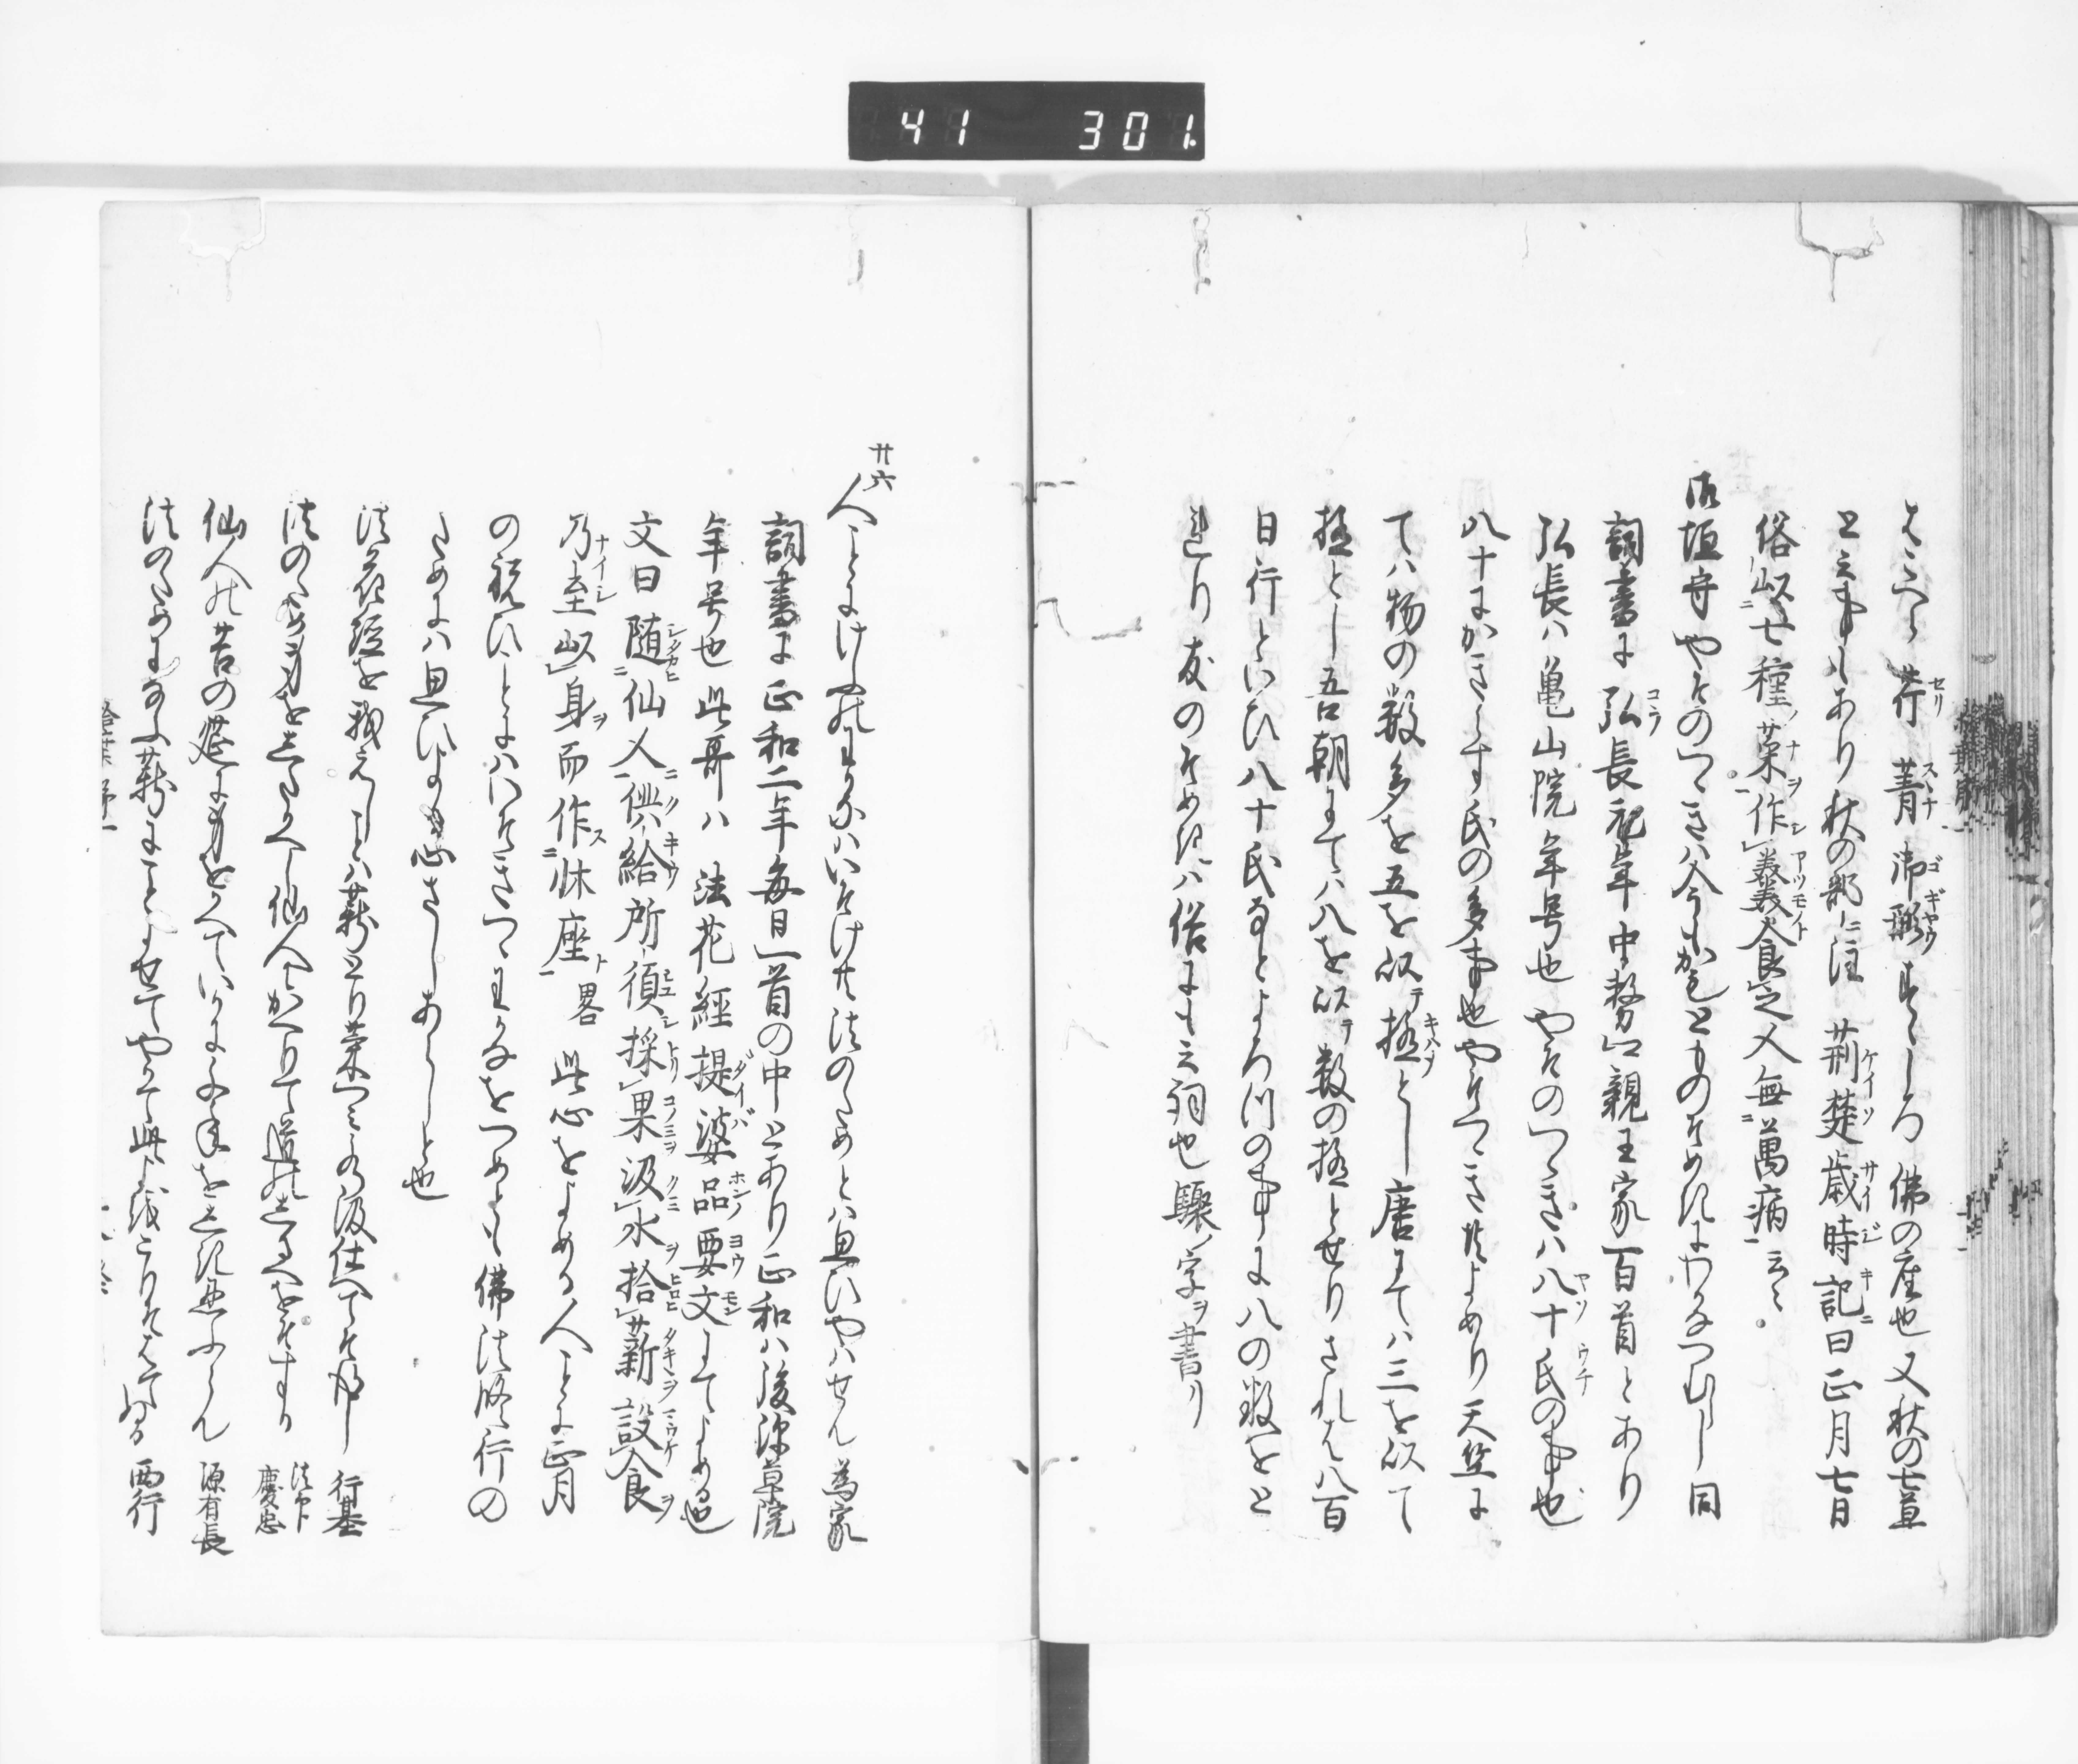 41 301
はこへら 芹 菁 御形 すゝしろ 佛の座也 又秋の七草
と云事もあり秋の部ニ注 荊楚歳時記曰正月七日
俗以七種ノ菜ヲ作羹食之人無萬病云々
御垣守やそのつゝきは今もかもとものそめきにわかなつむらし 同
詞書に弘長元年中務口親王家百首とあり
弘長ハ亀山院年号也やそのつゝきハ八十氏の事也
八十にかきらす氏の多事也やそつゝきともよめり天竺に
てハ物の数多を五を以テ極とし唐にてハ三を以て
極とし吾朝にてハ八を以テ数の極とせりされは八百
日行といひ八十氏なとよろつの事に八の数をと
れり友のそめきハ俗にも云詞也驟ノ字ヲ書リ
廿六
人ことにけふのわかなハいそけ共法のためとハ思ひやハせん 為家
詞書に正和二年毎日一首の中とあり正和ハ後深草院
年号也此哥ハ法花經提婆品要文にてよめる也
文曰随仙人供給所須採果汲水拾薪設食
乃至以身而作牀座ト畧 此心をよめる人ことに正月
の祝ひことにハいそきつゝわかなをつめとも佛法修行の
ためにハ思ひよる心さしあらしと也
法花經を我えしことハ薪こり菜つみ水汲仕へてそ得し 行基
法のため身をしたかへし仙人にかへりて道のしるへをそする 法印慶忠
仙人の苔の莚に身をかへていかに千年をしき忍ふらん 源有長
法のためになふ薪にことよせてやかて此世をこりそはてぬる 西行